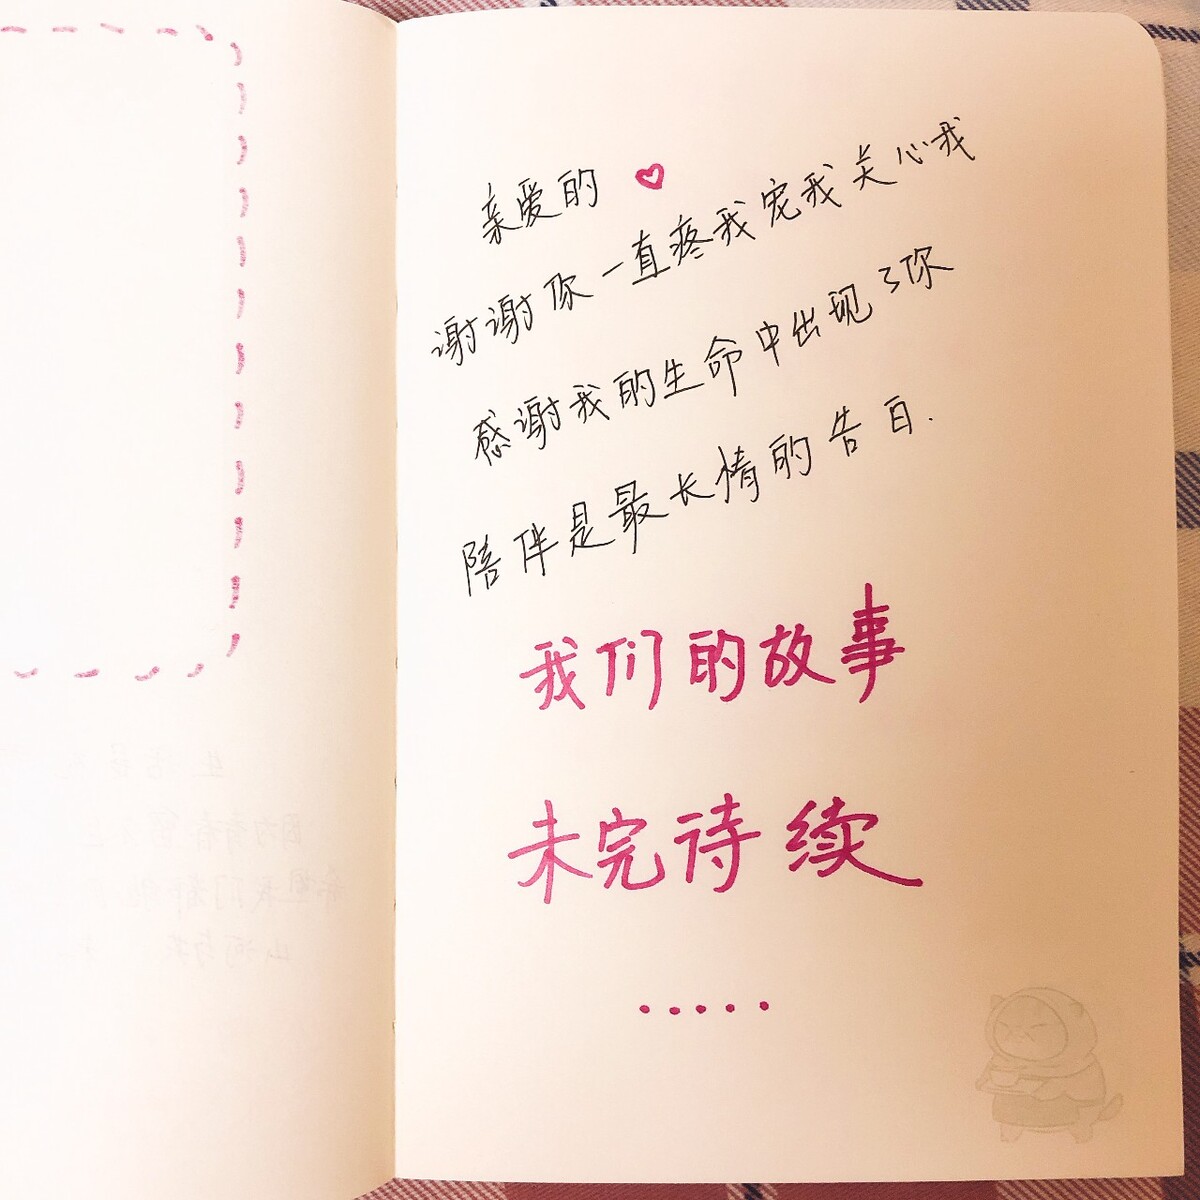 亲爱的
谢谢你一直疼我宠我关心我
感谢我的生命中出现了你
陪伴是最长情的告白.
我们的故事
未完待续
.....